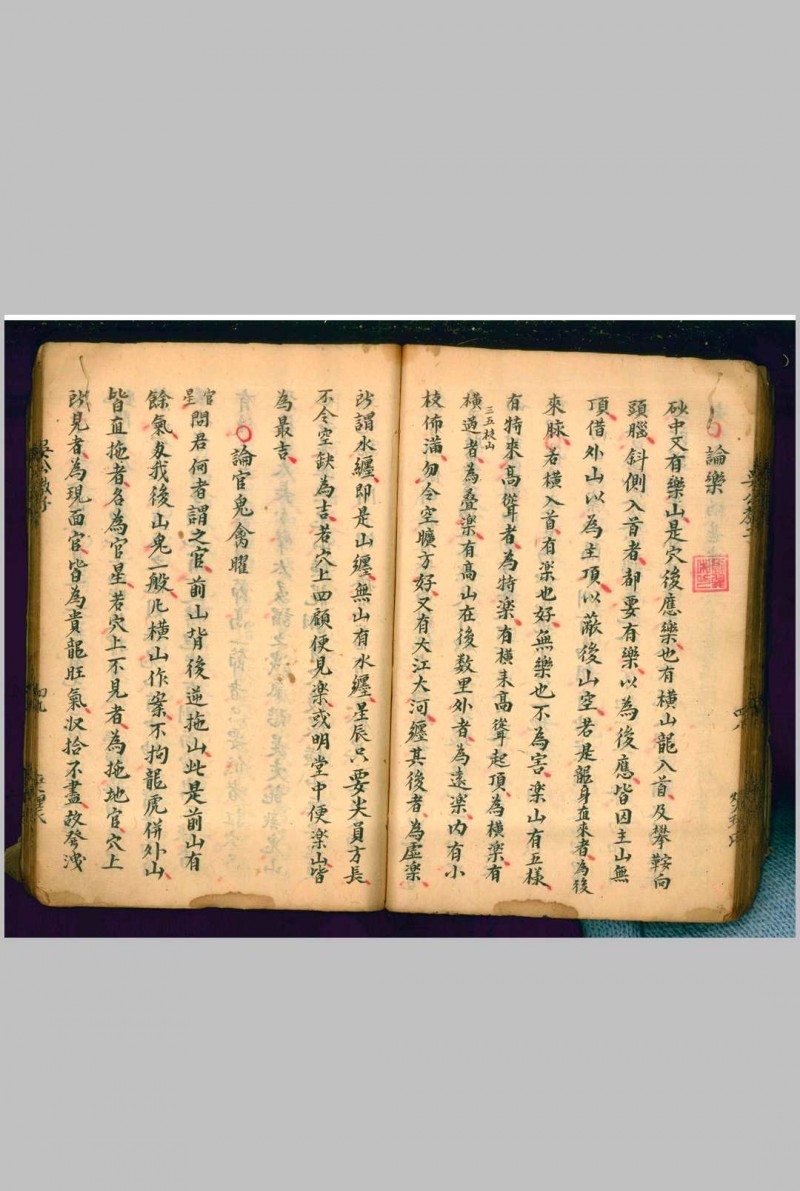 論樂
砂中又有樂山是穴後應樂也有横山龍入首及攀鞍向
頭腦斜側入首者都要有樂以為後應皆因主山無
頂借外山以為主頂以蔽後山空若是龍身直來者為後
來脉若横入首有楽也好無樂也不為害楽山有五樣
有特来高聳者為特楽有横来高聳起頂為横楽有
三五枝山
横過者為叠楽有高山在後数里外者為遠楽内有小
枝佈滿勿令空曠方好又有大江大河纒其後者為虛楽
所謂水纒即是山纒無山有水纒星辰只要尖員方長
不令空缺為吉若穴上四顧便見楽或明堂中便楽山皆
為最吉
論官鬼禽曜
官星
問君何者謂之官前山背後逆拖山此是前山有
餘氣與我後山鬼一般凡横山作案不拘龍虎併外山
皆直拖者名為官星若穴上不見者為拖地官穴上
所見者為現面官皆為貴龍旺氣収拾不盡故發洩